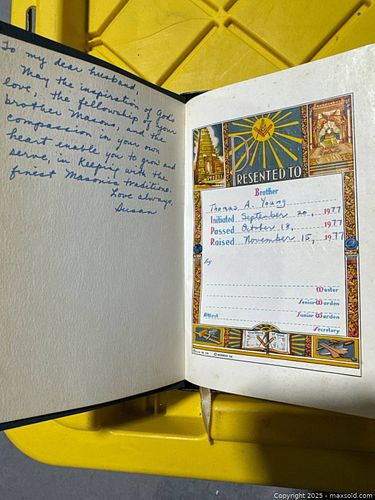 To my dear husband,
May the inspiration of God's
love, the fellowship of your
brother Masons, and the
compassion in your own
heart enable you to grow and
serve, in keeping with the
finest Masonic traditions.
Love always,
Susan
PRESENTED TO
Brother
Thomas A. Young
Initiated September 20, 1977
Passed October 18, 1977
Raised November 15, 1977
By
Master
Senior Warden
Attest Junior Warden
Secretary
Copyright 2025 - maxsold.com